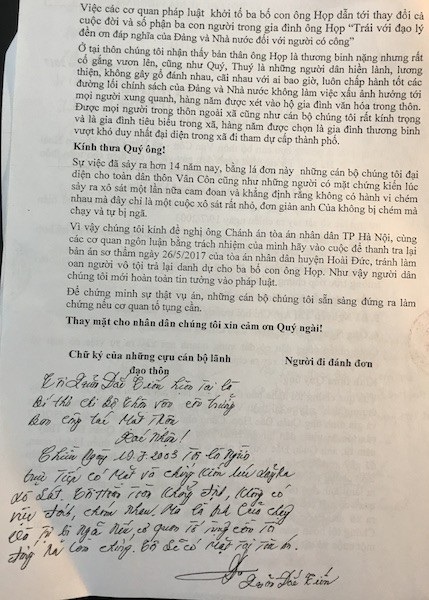 Việc các cơ quan pháp luật khởi tố ba bố con ông Họp dẫn tới thay đổi cả
cuộc đời và số phận ba con người trong gia đình ông Họp “Trái với đạo lý
đền ơn đáp nghĩa của Đảng và Nhà nước đối với người có công”
Ở tại thôn chúng tôi nhận thấy bản thân ông Họp là thương binh nặng nhưng rất
cố gắng vươn lên, cũng như Quý, Thuý là những người dân hiền lành, lương
thiện, không gây gổ đánh nhau, cãi nhau với ai bao giờ, luôn chấp hành tốt các
đường lối chính sách của Đảng và Nhà nước không làm việc xấu ảnh hưởng tới
mọi người xung quanh, hàng năm được xét vào hộ gia đình văn hóa trong thôn.
Được mọi người trong thôn ngoài xã cũng như cán bộ chúng tôi rất kính trọng
và là gia đình tiêu biểu trong xã, hàng năm được chọn là gia đình thương binh
vượt khó duy nhất đại diện trong xã đi tham dự cấp thành phố.
Kính thưa Quý ông!
Sự việc đã sảy ra hơn 14 năm nay, bằng lá đơn này những cán bộ chúng tôi đại
diện cho toàn dân thôn Vân Côn cũng như những người có mặt chứng kiến lúc
sảy ra xô sát một lần nữa cam đoan và khẳng định rằng không có hành vi chém
nhau mà đây chỉ là một cuộc xô sát rất nhỏ, đơn giản anh Của không bị chém mà
chạy và tự bị ngã.
Vì vậy chúng tôi kính đề nghị ông Chánh án tòa án nhân dân TP Hà Nội, cùng
các cơ quan ngôn luận bằng trách nhiệm của mình hãy vào cuộc để thanh tra lại
bản án sơ thẩm ngày 26/5/2017 của tòa án nhân dân huyện Hoài Đức, tránh làm
oan người vô tội trả lại danh dự cho ba bố con ông Họp. Như vậy người dân
chúng tôi mới hoàn toàn tin tưởng vào pháp luật.
Để chứng minh sự thật vụ án, những cán bộ chúng tôi sẵn sàng đứng ra làm
chứng nếu cơ quan tố tụng cần.
Thay mặt cho nhân dân chúng tôi xin cảm ơn Quý ngài!
Chữ ký của những cựu cán bộ lãnh đạo thôn
Người đi đánh đơn
Tôi Đắc Tiến hiện tại là
Bí thư chi bộ thôn
Ban công tác Mặt Thôn
Xác Nhận!
Chiều Ngày 2003 Tôi là Người
trực Tiếp có Mặt và chứng kiến lúc
xô Sát. Tôi Hoàn Toàn Khẳng Định, Không có
việc chém Nhau Mà là anh Của chạy
Và Tự bị Ngã Nếu cơ quan Tố Tụng cần Tôi
đứng Ra Làm chứng. Tôi Sẽ có Mặt Tại Tòa án.
Đắc Tiến